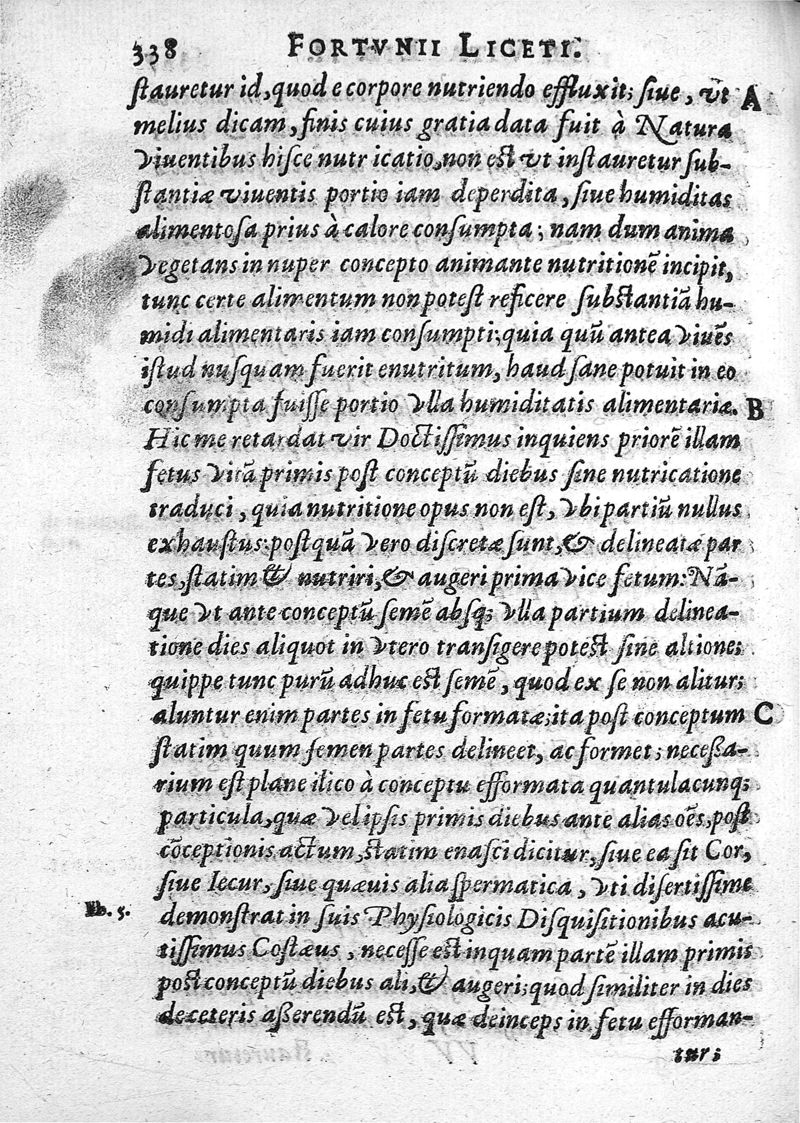 338 FORTVNII LICETI.
stauretur id, quod e corpore nutriendo effluxit; siue, vt A
melius dicam, finis cuius gratia data fuit à Natura
viuentibus hisce nutricatio, non est vt instauretur sub-
stantiæ viuentis portio iam deperdita, siue humiditas
alimentosa prius à calore consumpta; nam dum anima
vegetans in nuper concepto animante nutritionē incipit,
tunc certe alimentum non potest reficere substantiā hu-
midi alimentaris iam consumpti; quia quū antea viuēs
istud nusquam fuerit enutritum, haud sane potuit in eo
consumpta fuisse portio vlla humiditatis alimentariæ. B
Hic me retardat vir Doctissimus inquiens priorē illam
fetus vitā primis post conceptū diebus sine nutricatione
traduci, quia nutritione opus non est, vbi partiū nullus
exhaustus: postquā vero discretæ sunt, & delineatæ par
tes, statim & nutriri, & augeri prima vice fetum: Nā-
que vt ante conceptū semē absq; vlla partium delinea-
tione dies aliquot in vtero transigere potest sine altione;
quippe tunc purū adhuc est semē, quod ex se non alitur;
aluntur enim partes in fetu formatæ; ita post conceptum C
statim quum semen partes delineet, ac formet; necessa-
rium est plane ilico à conceptu efformata quantulacunq;
particula, quæ vel ipsis primis diebus ante alias oēs, post
cōceptionis actum, statim enasci dicitur, siue ea sit Cor,
siue Iecur, siue quæuis alia spermatica, vti disertissime
lib. 5. demonstrat in suis Physiologicis Disquisitionibus acu-
tissimus Costæus, necesse est inquam partē illam primis
post conceptū diebus ali, & augeri; quod similiter in dies
de ceteris asserendū est, quæ deinceps in fetu efforman-
tur;